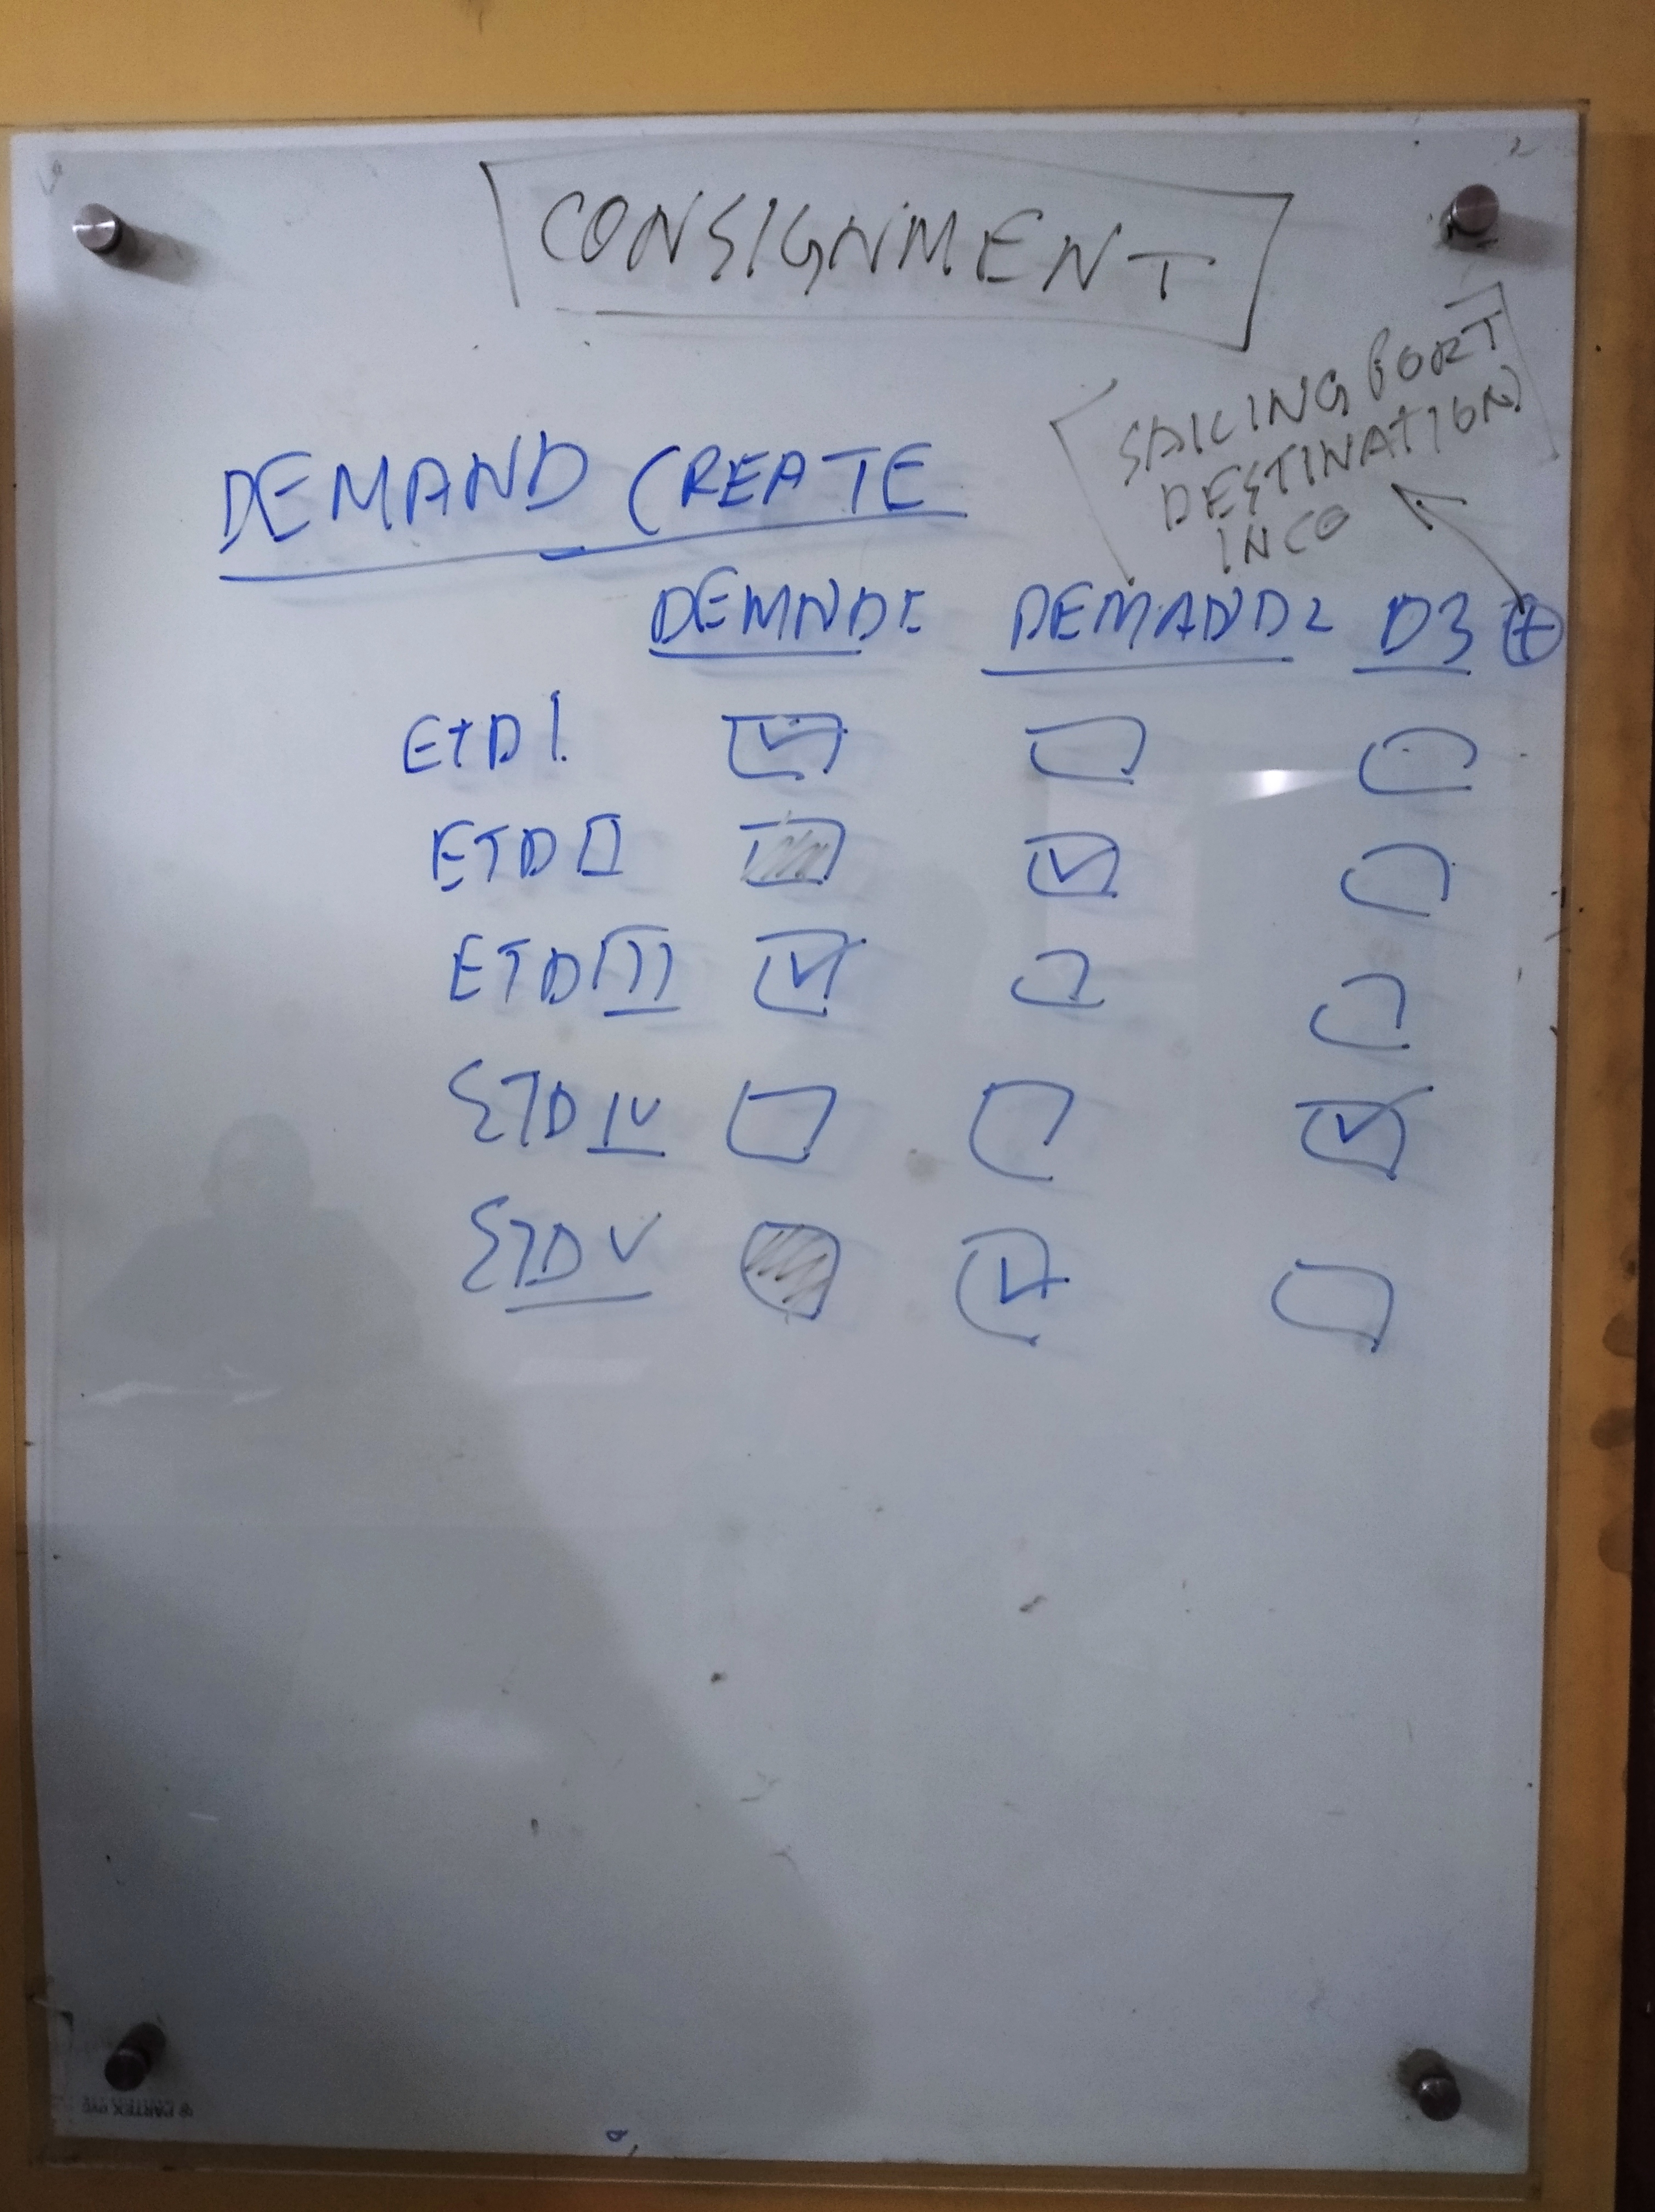 CONSIGNMENT
SAILING PORT
DESTINATION
INCO
DEMAND CREATE
DEMND1 DEMAND2 D3 +
ETD I
ETD II
ETD III
ETD IV
ETD V